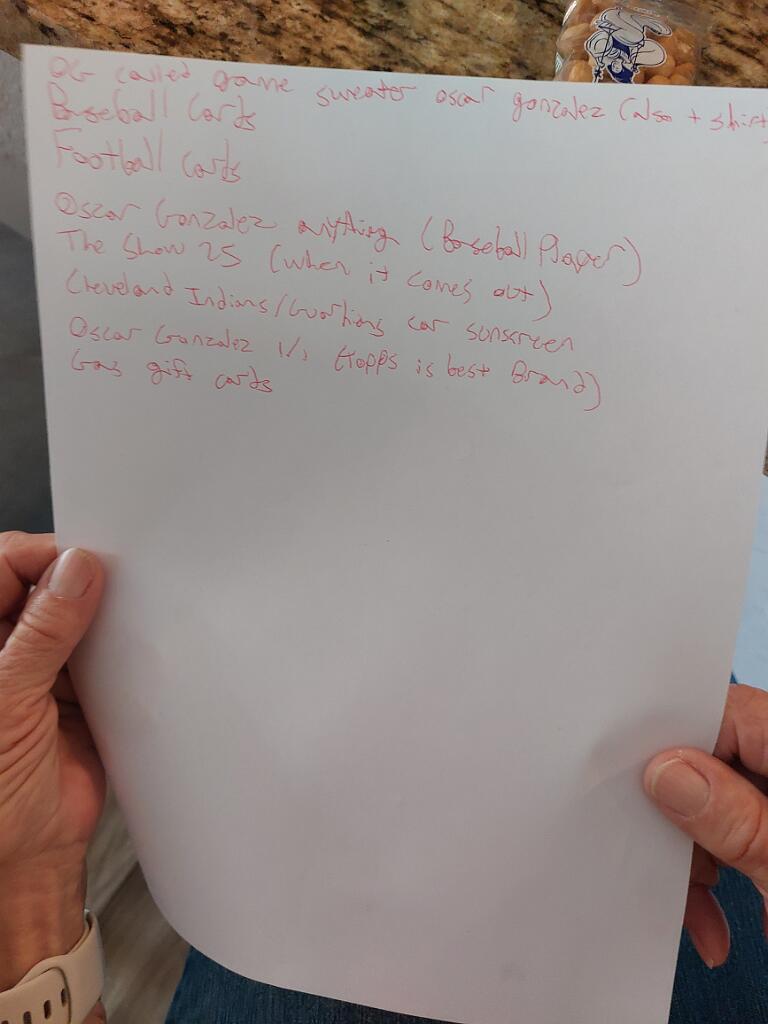 OG called game sweater oscar gonzalez (also t shirt
Baseball Cards
Football Cards
Oscar Gonzalez anything (Baseball Player)
The Show 25 (when it comes out)
Cleveland Indians/Guardians car sunscreen
Oscar Gonzalez 1/1 (topps is best Brand)
Gas gift cards